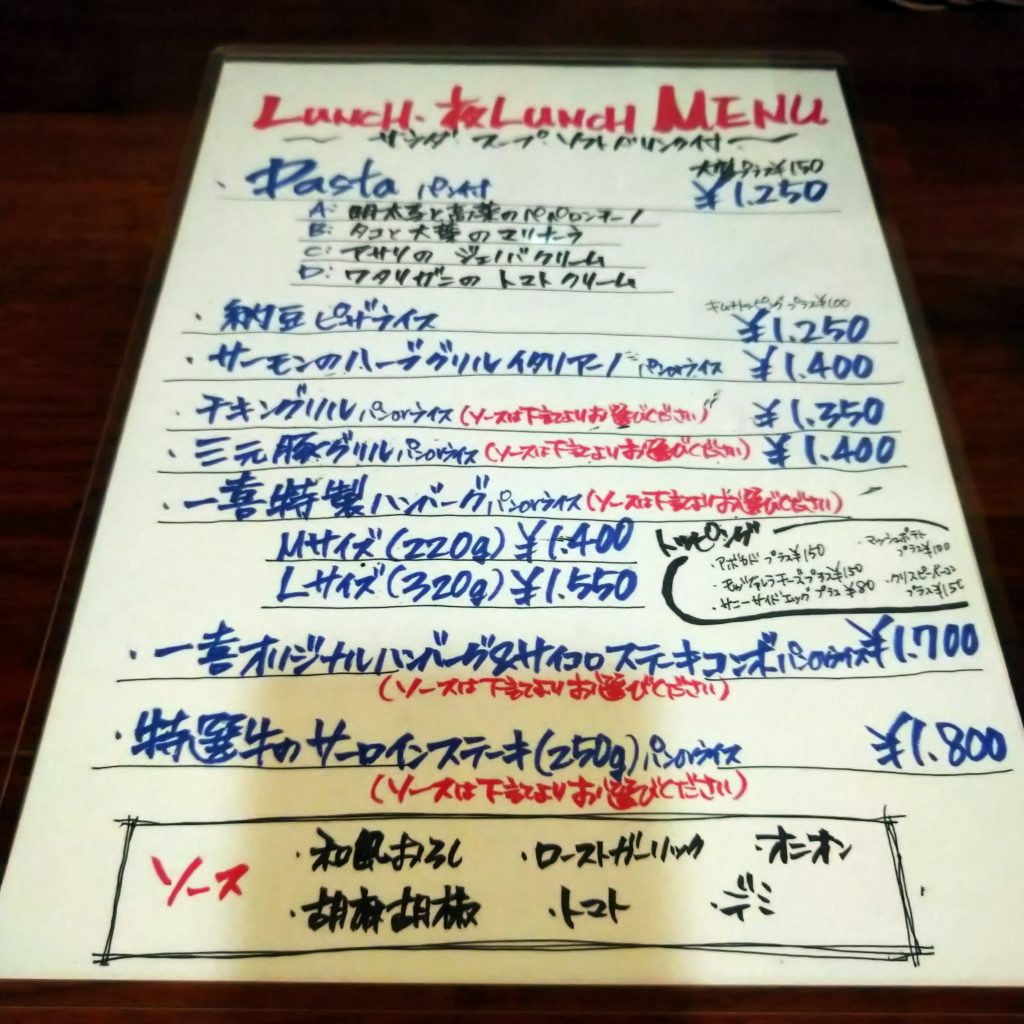 LUNCH・夜LUNCH MENU
サラダ スープ ソフトドリンク付
大盛プラス¥150
・Pasta パン付 ¥1.250
A: 明太子と高菜のペペロンチーノ
B: タコと大葉のマリナーラ
C: アサリの ジェノバクリーム
D: ワタリガニの トマトクリーム
キムチトッピング プラス¥100
・納豆ピザライス ¥1.250
・サーモンのハーブグリルイタリアーノ パンorライス ¥1.400
・チキングリル パンorライス(ソースは下記よりお選びください) ¥1.350
・三元豚グリル パンorライス(ソースは下記よりお選びください) ¥1.400
・一喜特製ハンバーグ パンorライス(ソースは下記よりお選びください)
Mサイズ(220g) ¥1.400
Lサイズ(320g) ¥1.550
トッピング
・アボカド プラス¥150
・モッツァレラチーズプラス¥150
・サニーサイドエッグ プラス ¥80
・マッシュポテト プラス¥100
・クリスピーベーコン プラス¥150
・一喜オリジナルハンバーグ&サイコロステーキコンボ パンorライス ¥1.700
(ソースは下記よりお選びください)
・特選牛のサーロインステーキ(250g) パンorライス ¥1.800
(ソースは下記よりお選びください)
ソース
・和風おろし ・ローストガーリック ・オニオン
・胡麻胡椒 ・トマト ・デミ